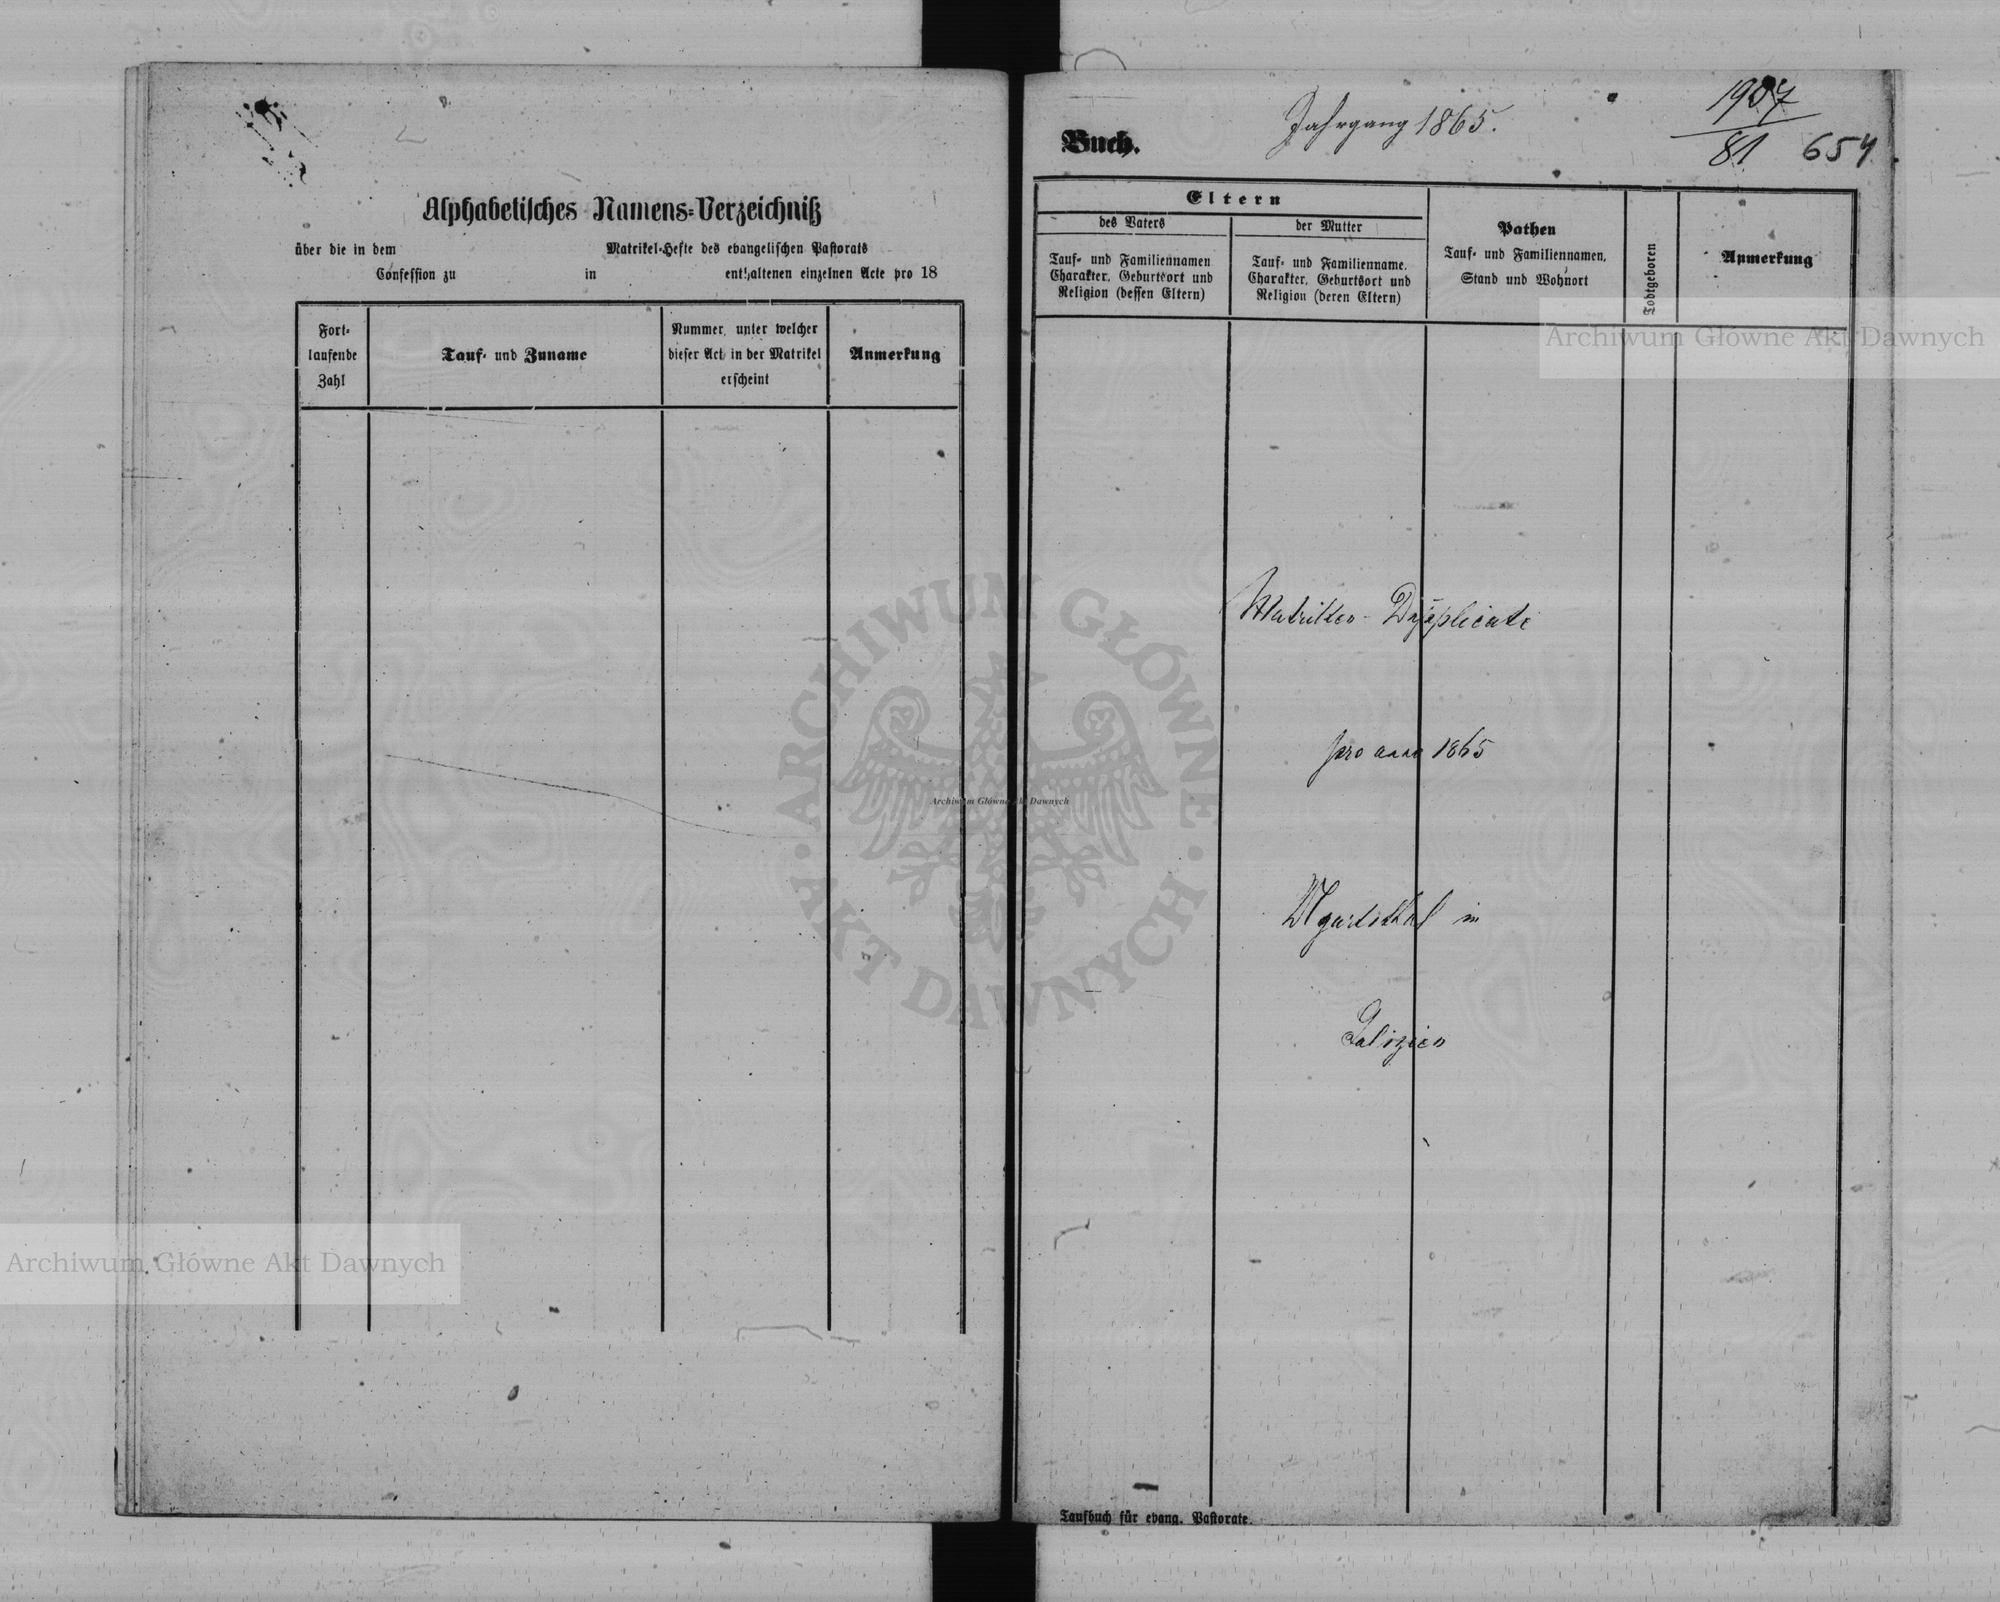 Alphabetisches Namens-Verzeichniß
über die in dem Matrikel-Hefte des evangelischen Pastorats
Confession zu in enthaltenen einzelnen Acte pro 18
Fort-
laufende
Zahl
Tauf- und Zuname
Nummer, unter welcher
dieser Act in der Matrikel
erscheint
Anmerkung
Buch.
Jahrgang 1865.
1907
81
654
Eltern
des Vaters
Tauf- und Familiennamen
Charakter, Geburtsort und
Religion (dessen Eltern)
der Mutter
Tauf- und Familienname,
Charakter, Geburtsort und
Religion (deren Eltern)
Pathen
Tauf- und Familiennamen,
Stand und Wohnort
Todtgeboren
Anmerkung
Matriken-Duplicate
pro anno 1865
in
Galizien
Taufbuch für evang. Pastorate.
Archiwum Główne Akt Dawnych
Archiwum Główne Akt Dawnych
Archiwum Główne Akt Dawnych
ARCHIWUM GŁÓWNE
AKT DAWNYCH